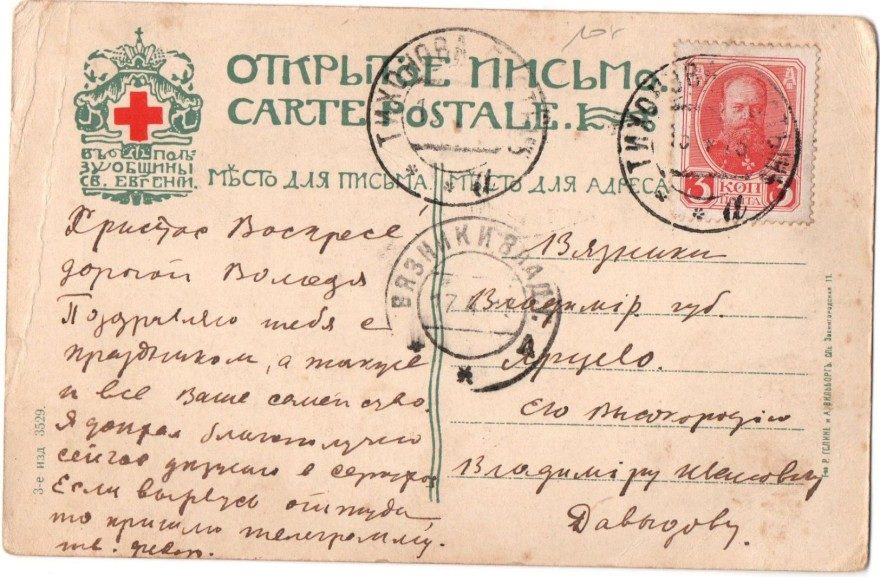 ОТКРЫТОЕ ПИСЬМО
CARTE POSTALE.
ВЪ ПОЛЬ
ЗУ ОБЩИНЫ
СВ. ЕВГЕНІИ.
МѢСТО ДЛЯ ПИСЬМА.
МѢСТО ДЛЯ АДРЕСА
ТИХОНОВА
а
ТИХОНОВА
а
3 КОП 3
ПОЧТА
ВЯЗНИКИ ВЛАД.
4
Христос Воскресе
дорогой Володя
Поздравляю тебя с
праздником, а также
и все Ваше семейство.
Я доехал благополучно
сейчас
Если вырвусь оттуда
то пришлю телеграмму.
тв.
Вязники
Владимір. губ.
Ярцево.
Его Высокородію
Владиміру Ивановичу
Давыдову.
3-е изд 3529.
Т-во Р. ГОЛИКЕ и А. ВИЛЬБОРГЪ. СПб. Звенигородская 11.